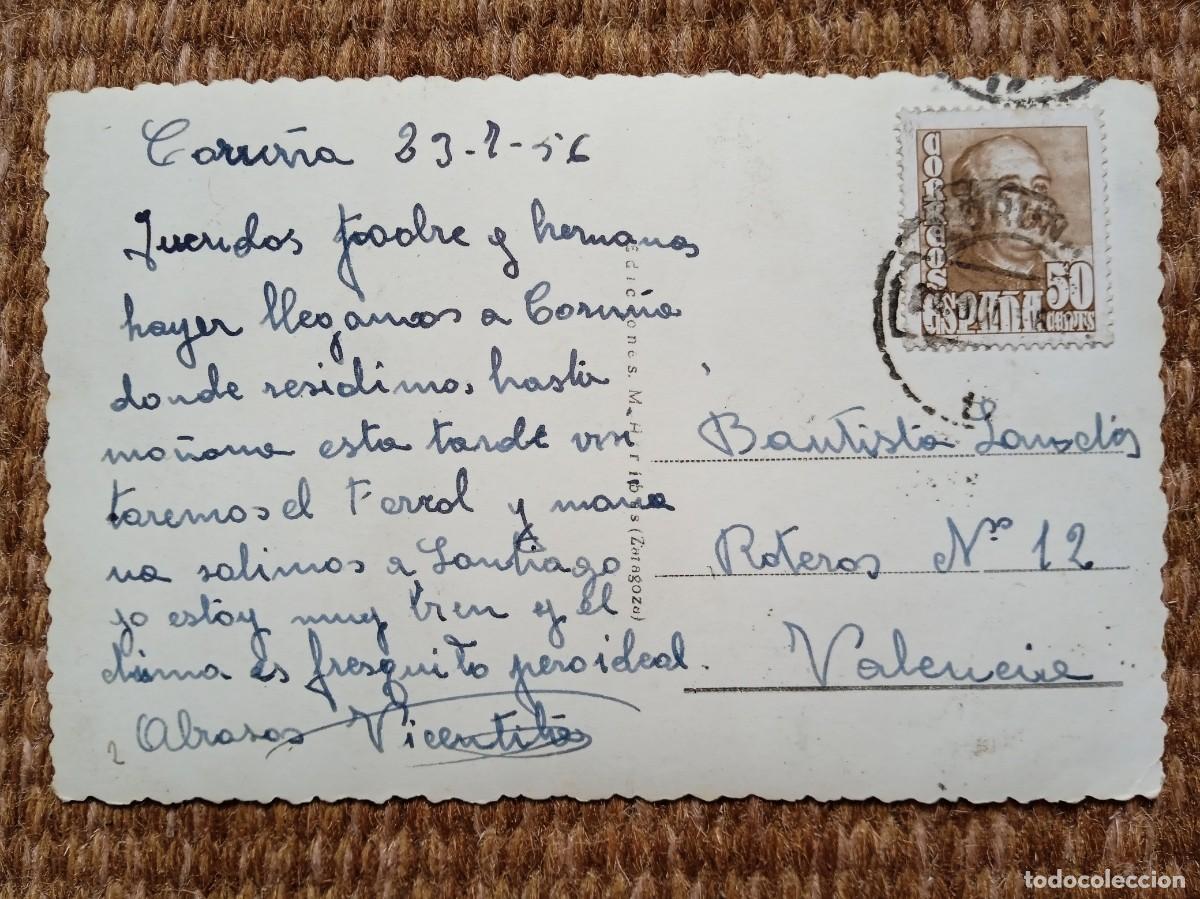 Coruña 23-7-56
Queridos padre y hermanos
hayer llegamos a Coruña
donde residimos hasta
mañana esta tarde visi
taremos el Ferrol y maña
na salimos a Santiago
yo estoy muy bien y el
clima es fresquito pero ideal.
Abrasos Vicentito
2
Ediciones. M. Arribas (Zaragoza)
CORREOS
ESPAÑA
50
CENTS
Bautista
Roteros Nº 12
Valencia
todocoleccion